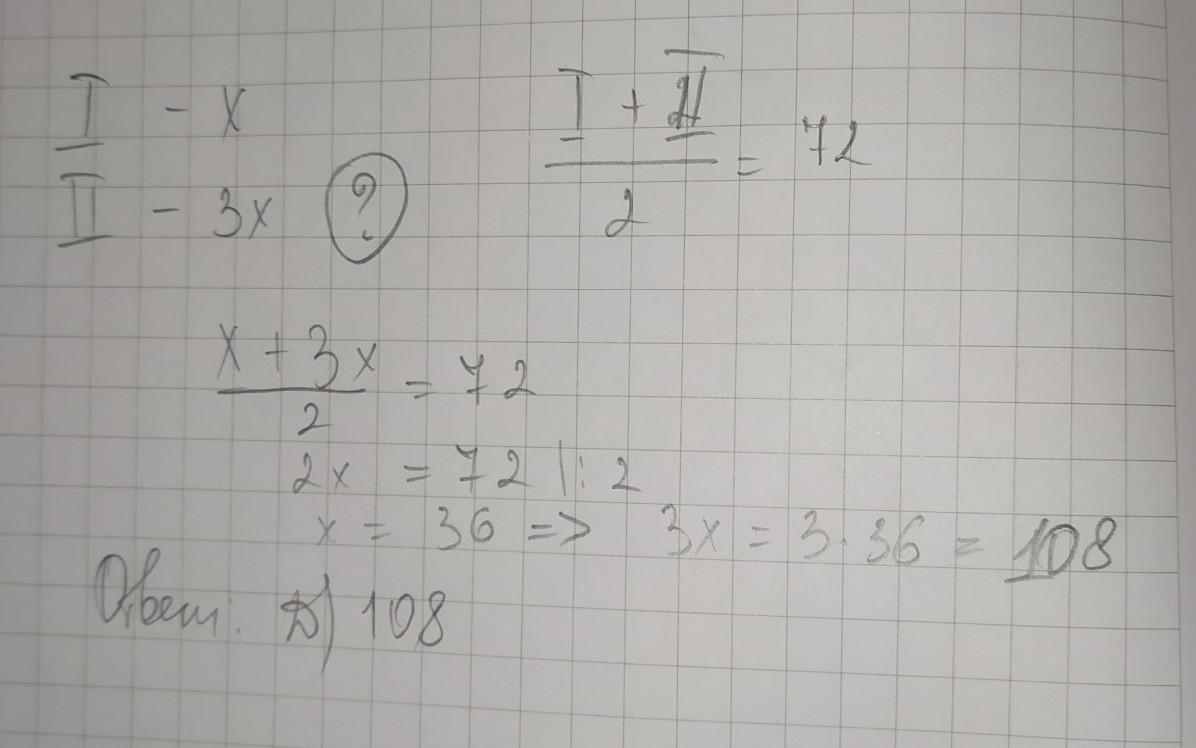 I - x
II - 3x ?
(I + II)/2 = 72
(x + 3x)/2 = 72
2x = 72 |: 2
x = 36 => 3x = 3·36 = 108
Ответ: Д) 108